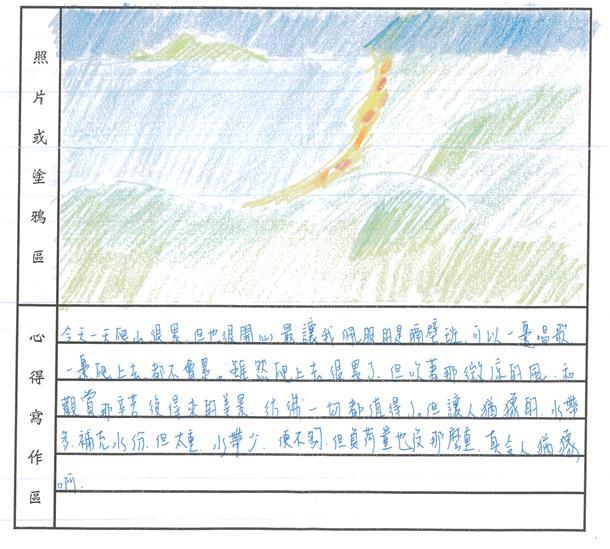 照片或塗鴉區
心得寫作區
今天一天爬山很累,但也很開心,最讓我佩服的是隔壁班,可以一邊唱歌
一邊爬上去,都不會累。雖然爬上去很累了,但吹著那微涼的風,和
觀賞那辛苦後得來的美景,彷彿一切都值得了。但讓人猶豫的,水帶
多,補充水份,但太重,水帶少,便不夠,但負荷量也沒那麼重,真令人猶豫
啊.